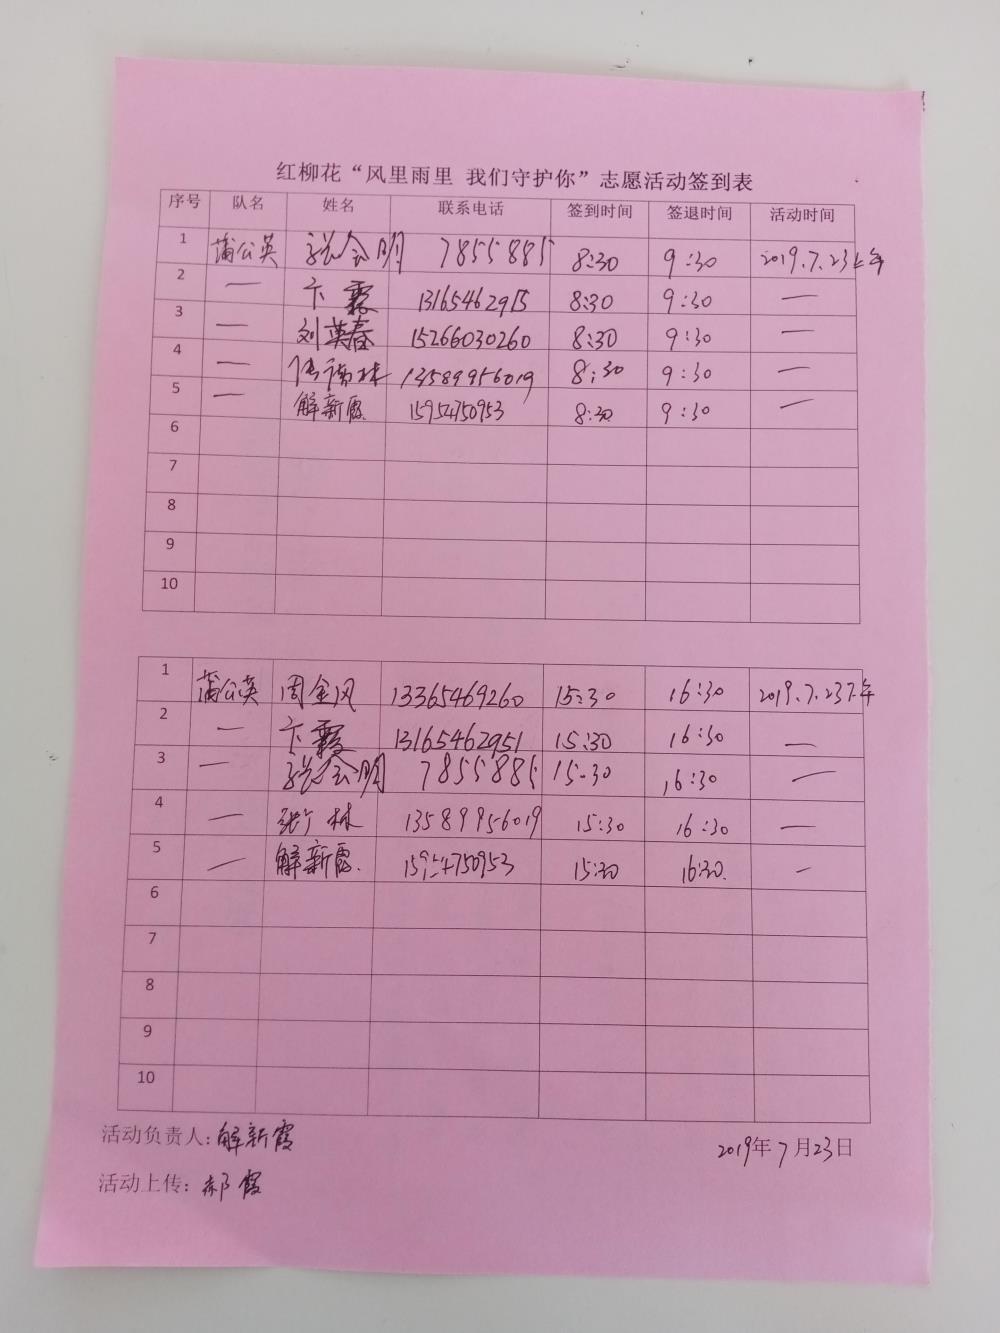 红柳花“风里雨里 我们守护你”志愿活动签到表
序号 队名 姓名 联系电话 签到时间 签退时间 活动时间
1 蒲公英 张会明 7855885 8:30 9:30 2019.7.23上午
2 — 卞霞 1316546295 8:30 9:30 —
3 — 刘英春 15266030260 8:30 9:30 —
4 — 13589956019 8:30 9:30 —
5 — 解新霞 15954750953 8:30 9:30 —
6
7
8
9
10
1 蒲公英 周金风 13365469260 15:30 16:30 2019.7.23下午
2 — 卞霞 13165462951 15:30 16:30 —
3 — 张会明 7855885 15-30 16:30 —
4 — 张广林 13589956019 15:30 16:30 —
5 — 解新霞 15954750953 15:30 16:30 —
6
7
8
9
10
活动负责人:解新霞
2019年7月23日
活动上传:郝霞